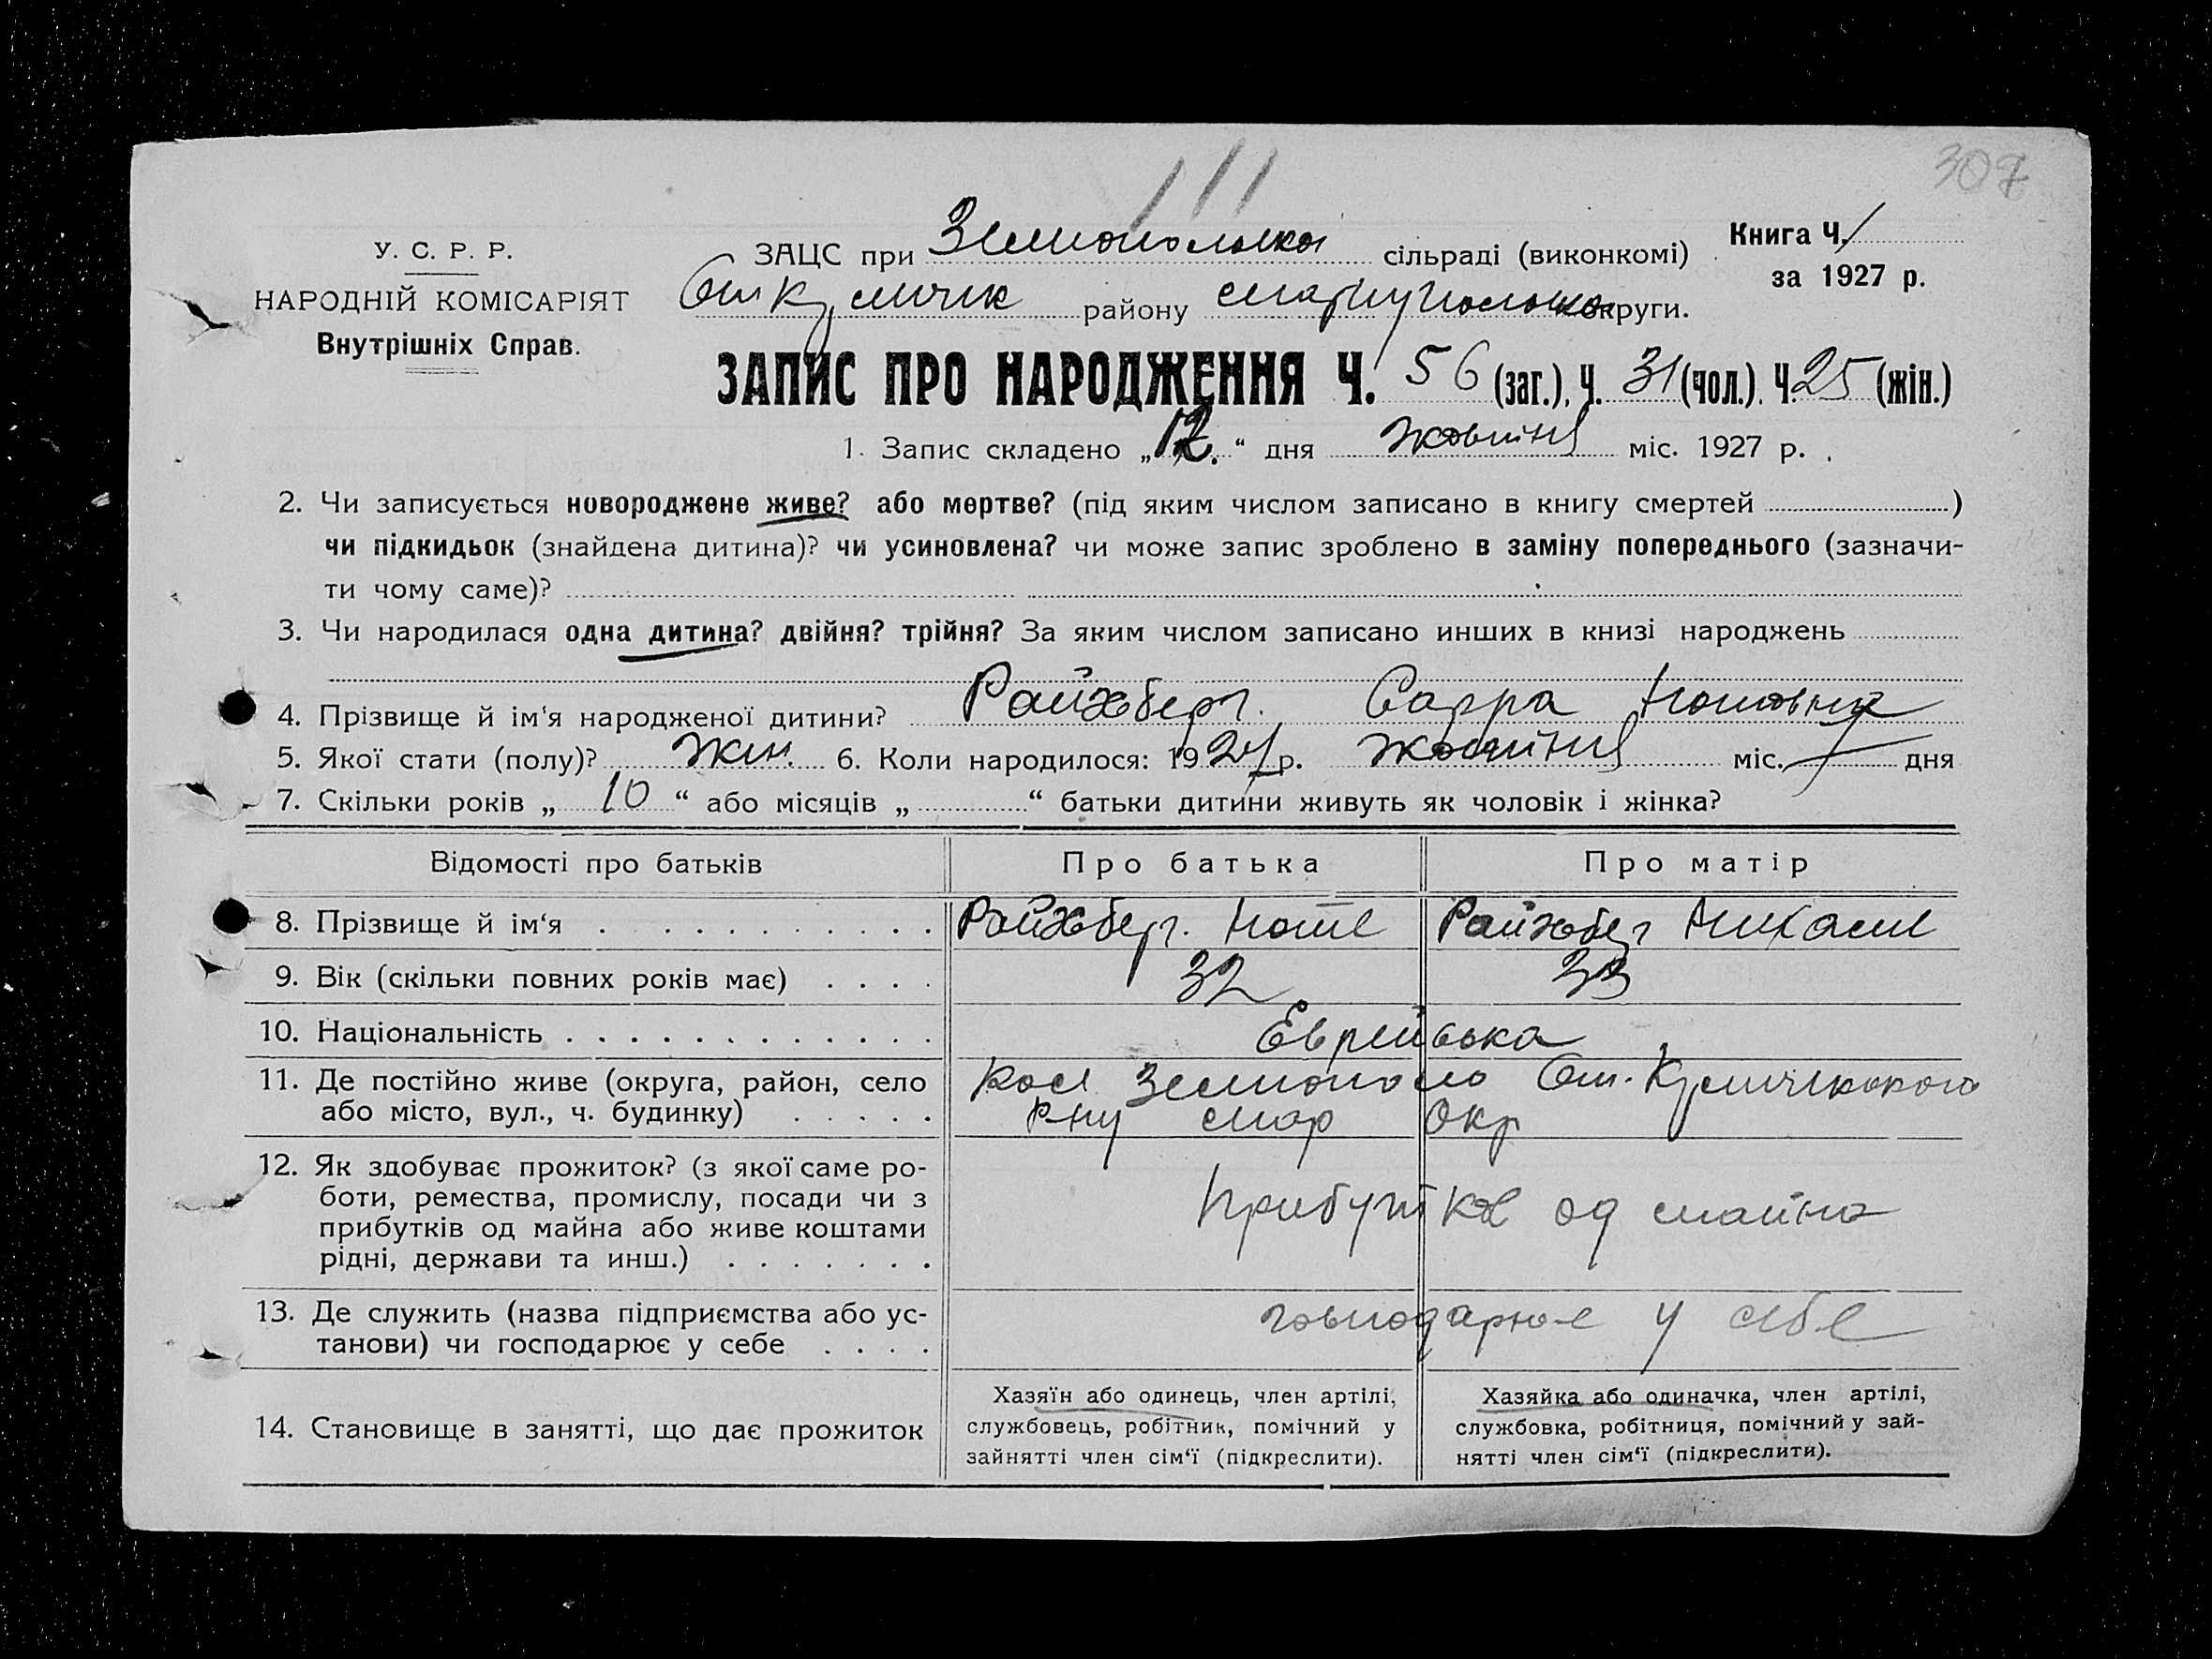 111
307
У. С. Р. Р.
НАРОДНІЙ КОМІСАРІЯТ
Внутрішніх Справ.
ЗАЦС при Зеленопольська сільраді (виконкомі)
Книга Ч. 1
за 1927 р.
От Кременчик району Маріупольська округи.
ЗАПИС ПРО НАРОДЖЕННЯ Ч. 56 (заг.), Ч. 31 (чол.). Ч. 25 (жін.)
1. Запис складено „12.“ дня жовтня міс. 1927 р.
2. Чи записується новороджене живе? або мертве? (під яким числом записано в книгу смертей )
чи підкидьок (знайдена дитина)? чи усиновлена? чи може запис зроблено в заміну попереднього (зазначи-
ти чому саме)?
3. Чи народилася одна дитина? двійня? трійня? За яким числом записано инших в книзі народжень
4. Прізвище й ім‘я народженої дитини? Райхберг. Сарра Нотовна
5. Якої стати (полу)? жін. 6. Коли народилося: 1927 р. жовтня міс. 7 дня
7. Скільки років „ 10 “ або місяців „ “ батьки дитини живуть як чоловік і жінка?
Відомості про батьків Про батька Про матір
8. Прізвище й ім‘я Райхберг.Ноте Райхберг
9. Вік (скільки повних років має) 32 33
10. Національність Еврейська
11. Де постійно живе (округа, район, село Кол
або місто, вул., ч. будинку) Рну мар Окр
12. Як здобуває прожиток? (з якої саме ро-
боти, ремества, промислу, посади чи з
прибутків од майна або живе коштами
рідні, держави та инш.) прибутків од майна
13. Де служить (назва підприємства або ус-
танови) чи господарює у себе господарює у себе
14. Становище в занятті, що дає прожиток
Хазяїн або одинець, член артілі,
службовець, робітник, помічний у
зайнятті член сім‘ї (підкреслити).
Хазяйка або одиначка, член артілі,
службовка, робітниця, помічний у зай-
нятті член сім‘ї (підкреслити).